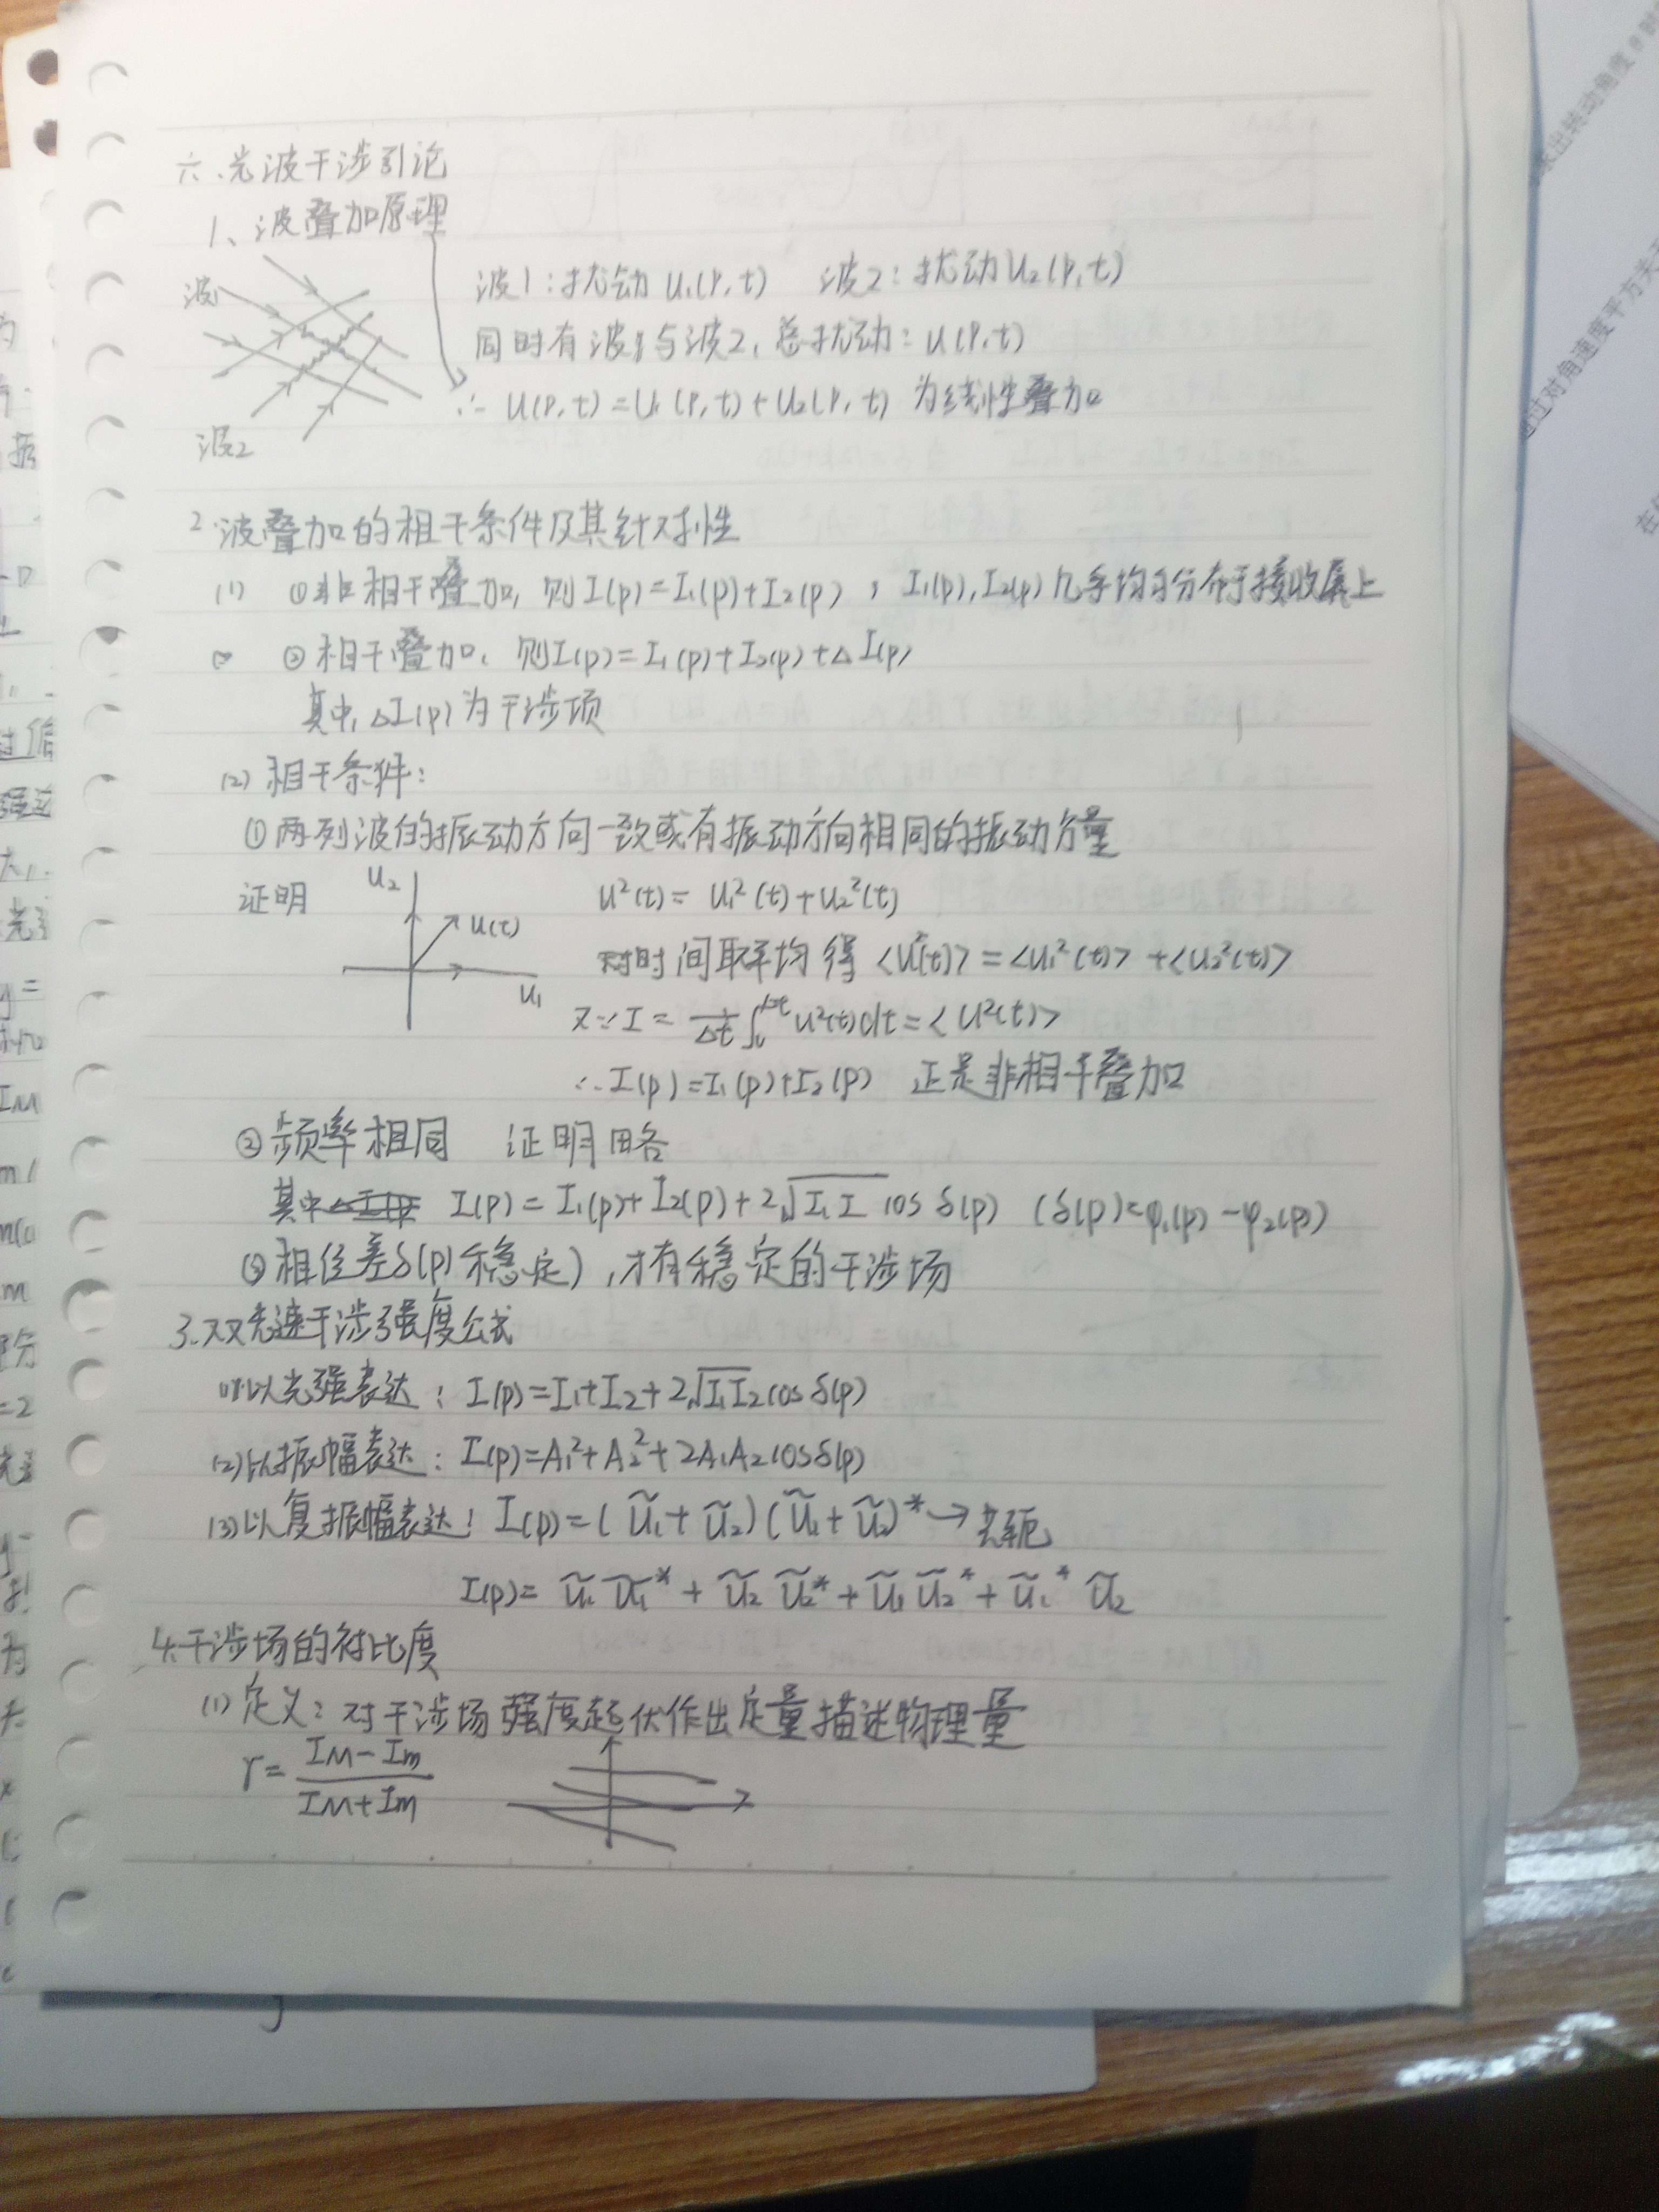 六、光波干涉引论
1、波叠加原理
波1
波1:扰动 U₁(P,t) 波2:扰动 U₂(P,t)
同时有波1与波2,总扰动:U(P,t)
∴ U(P,t)=U₁(P,t)+U₂(P,t) 为线性叠加
波2
2.波叠加的相干条件及其针对性
(1) ①非相干叠加,则I(p)=I₁(p)+I₂(p),I₁(p),I₂(p)几乎均匀分布于接收屏上
②相干叠加,则I(p)=I₁(p)+I₂(p)+ΔI(p)
其中,ΔI(p)为干涉项
(2)相干条件:
①两列波的振动方向一致或有振动方向相同的振动分量
证明 U₂ U(t) U₁
U²(t)=U₁²(t)+U₂²(t)
对时间取平均得<U²(t)>=<U₁²(t)>+<U₂²(t)>
又∵I=1/Δt ∫₀^Δt U²(t)dt=<U²(t)>
∴I(p)=I₁(p)+I₂(p) 正是非相干叠加
②频率相同 证明略
其中 I(p)=I₁(p)+I₂(p)+2√(I₁I) cosδ(p) (δ(p)=φ₁(p)-φ₂(p))
③相位差δ(p)稳定),才有稳定的干涉场
3.双光速干涉强度公式
(1)以光强表达:I(p)=I₁+I₂+2√(I₁I₂)cosδ(p)
(2)以振幅表达:I(p)=A₁²+A₂²+2A₁A₂cosδ(p)
(3)以复振幅表达:I(p)=(Ũ₁+Ũ₂)(Ũ₁+Ũ₂)*→共轭
I(p)=Ũ₁Ũ₁*+Ũ₂Ũ₂*+Ũ₁Ũ₂*+Ũ₁*Ũ₂
4.干涉场的衬比度
(1)定义:对干涉场强度起伏作出定量描述物理量
γ=(IM-Im)/(IM+Im)